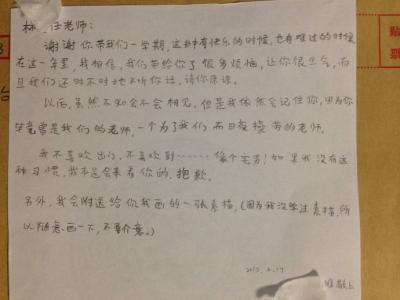 林 任老师:
谢谢你带我们一学期,这其中有快乐的时候,也有难过的时候
在这一年里,我相信,我们带给你了很多烦恼,让你很生气,而
且我们还时不时地不听你话,请你原谅。
以后,虽然不知会不会相见,但是我依然会记住你,因为你
毕竟曾是我们的老师,一个为了我们而日夜操劳的老师。
我不喜欢出门,不喜欢到……像个宅男!如果我没有这
种习惯,我不是会来看你的,抱歉。
另外,我会附送给你我画的一张素描,(因为我没学过素描,所
以随意画一下,不要介意。)
敬上
贴
票